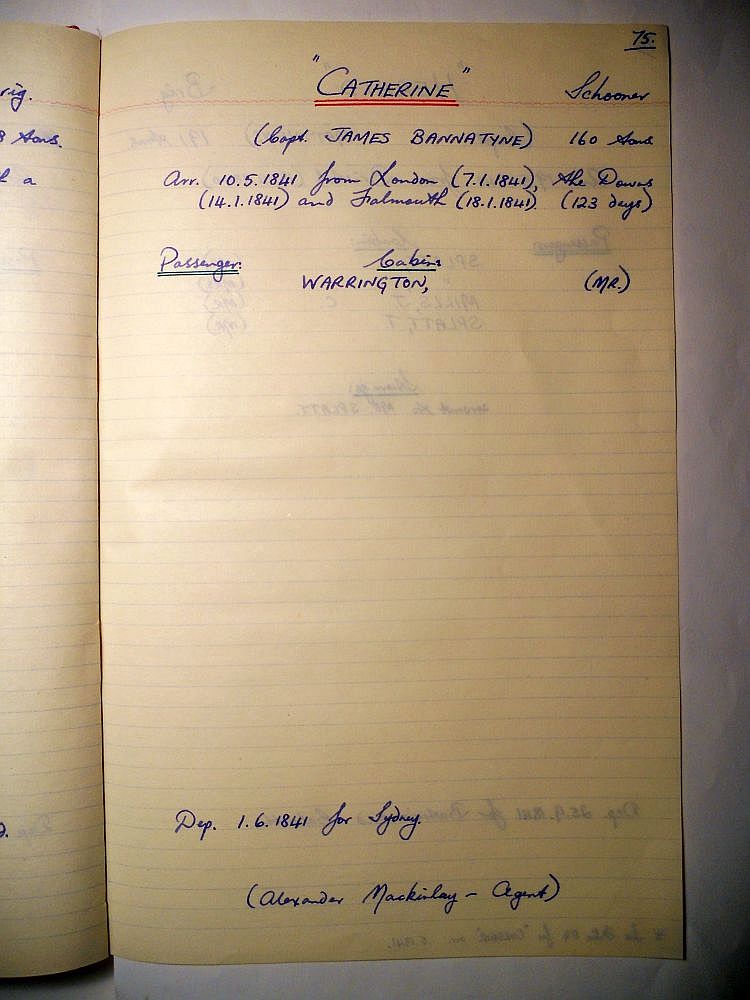 75.
"CATHERINE" Schooner
(Capt. JAMES BANNATYNE) 160 tons
Arr. 10.5.1841 from London (7.1.1841), the Downs
(14.1.1841) and Falmouth (18.1.1841) (123 days)
Passenger: Cabin:
WARRINGTON, (MR.)
Dep. 1.6.1841 for Sydney.
(Alexander Mackinlay - Agent)